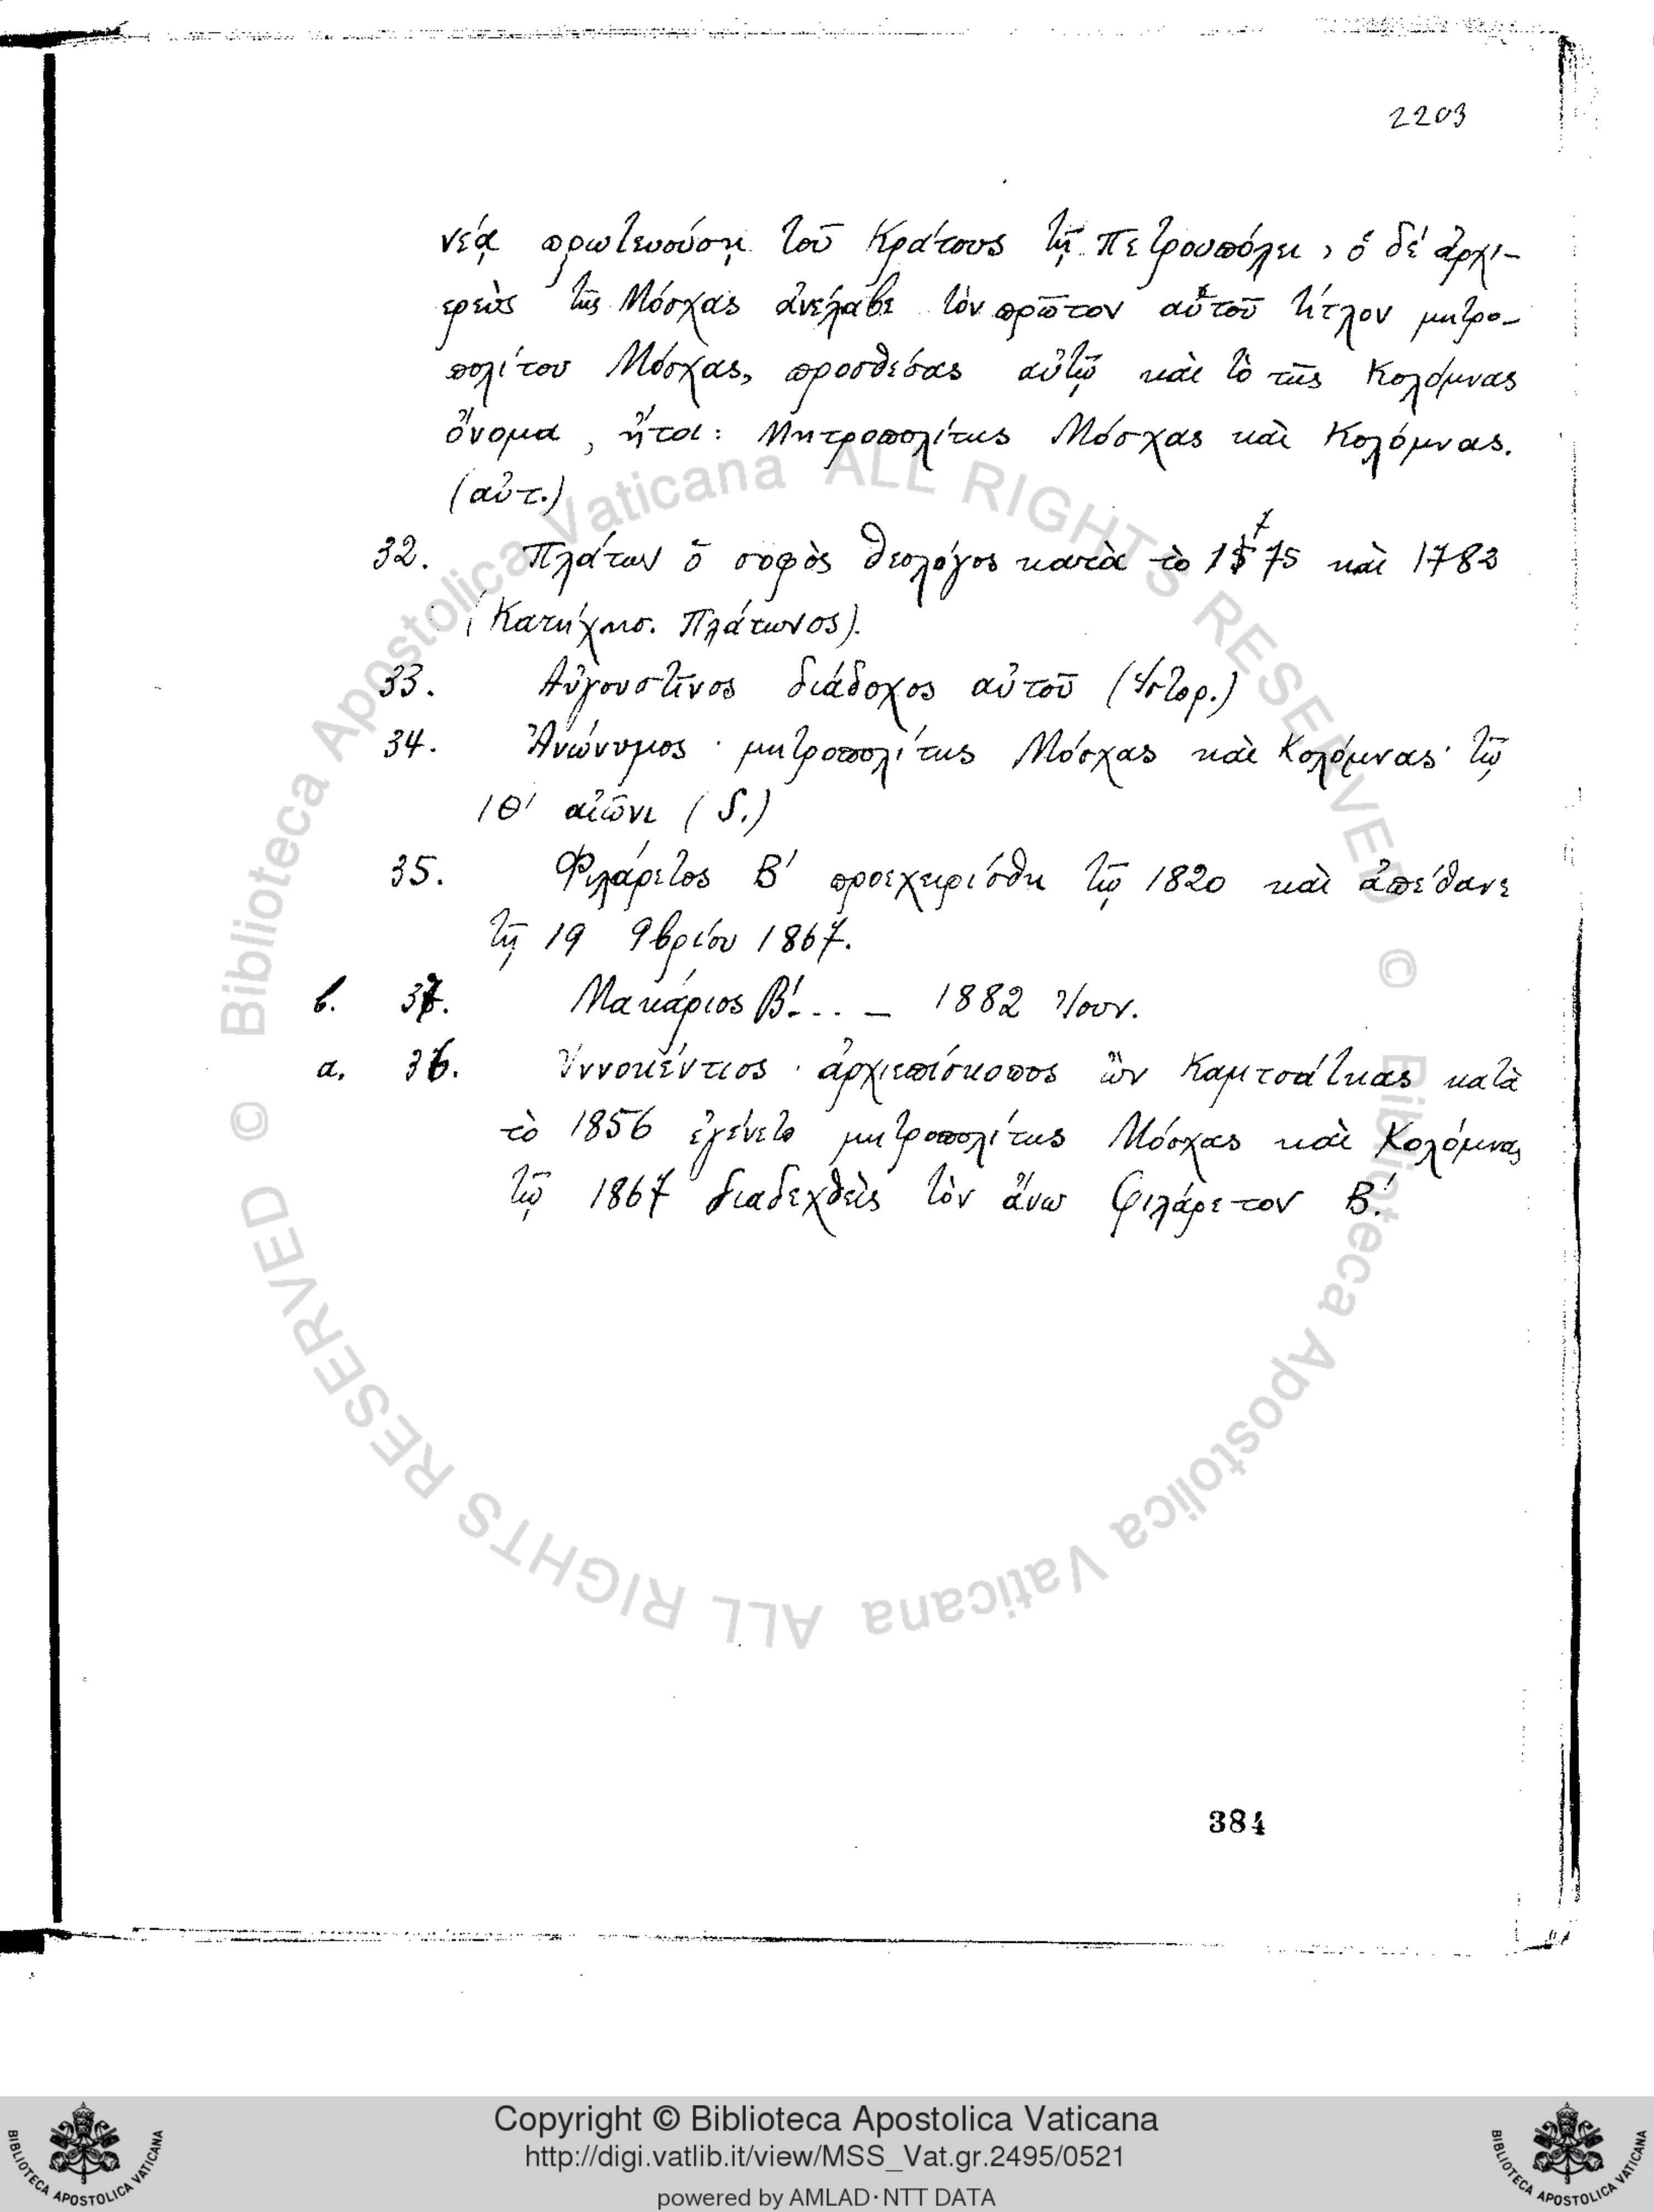 2203
νέᾳ πρωτευούσῃ τοῦ Κράτους τῇ Πετρουπόλει, ὁ δὲ ἀρχι-
ερεὺς τῆς Μόσχας ἀνέλαβε τὸν πρῶτον αὐτοῦ τίτλον μητρο-
πολίτου Μόσχας, προσθέσας αὐτῷ καὶ τὸ τῆς Κολόμνας
ὄνομα, ἤτοι: Μητροπολίτης Μόσχας καὶ Κολόμνας.
(αὐτ.)
32. Πλάτων ὁ σοφὸς θεολόγος κατὰ τὸ 1775 καὶ 1782
(Κατήχησ. Πλάτωνος).
33. Αὐγουστῖνος διάδοχος αὐτοῦ (Ἱστορ.)
34. Ἀνώνυμος · μητροπολίτης Μόσχας καὶ Κολόμνας· τῷ
ΙΘ' αἰῶνι (S.)
35. Φιλάρετος Β' προεχειρίσθη τῷ 1820 καὶ ἀπέθανε
τῇ 19 9βρίου 1867.
β. 37. Μακάριος Β'. . . – 1882 Ἰουν.
α. 36. Ἰννοκέντιος · ἀρχιεπίσκοπος ὢν Καμτσάτκας κατὰ
τὸ 1856 ἐγένετο μητροπολίτης Μόσχας καὶ Κολόμνας
τῷ 1867 διαδεχθεὶς τὸν ἄνω Φιλάρετον Β'.
384
© Biblioteca Apostolica Vaticana ALL RIGHTS RESERVED
© Biblioteca Apostolica Vaticana ALL RIGHTS RESERVED
Copyright © Biblioteca Apostolica Vaticana
http://digi.vatlib.it/view/MSS_Vat.gr.2495/0521
powered by AMLAD·NTT DATA
BIBLIOTECA APOSTOLICA VATICANA
BIBLIOTECA APOSTOLICA VATICANA